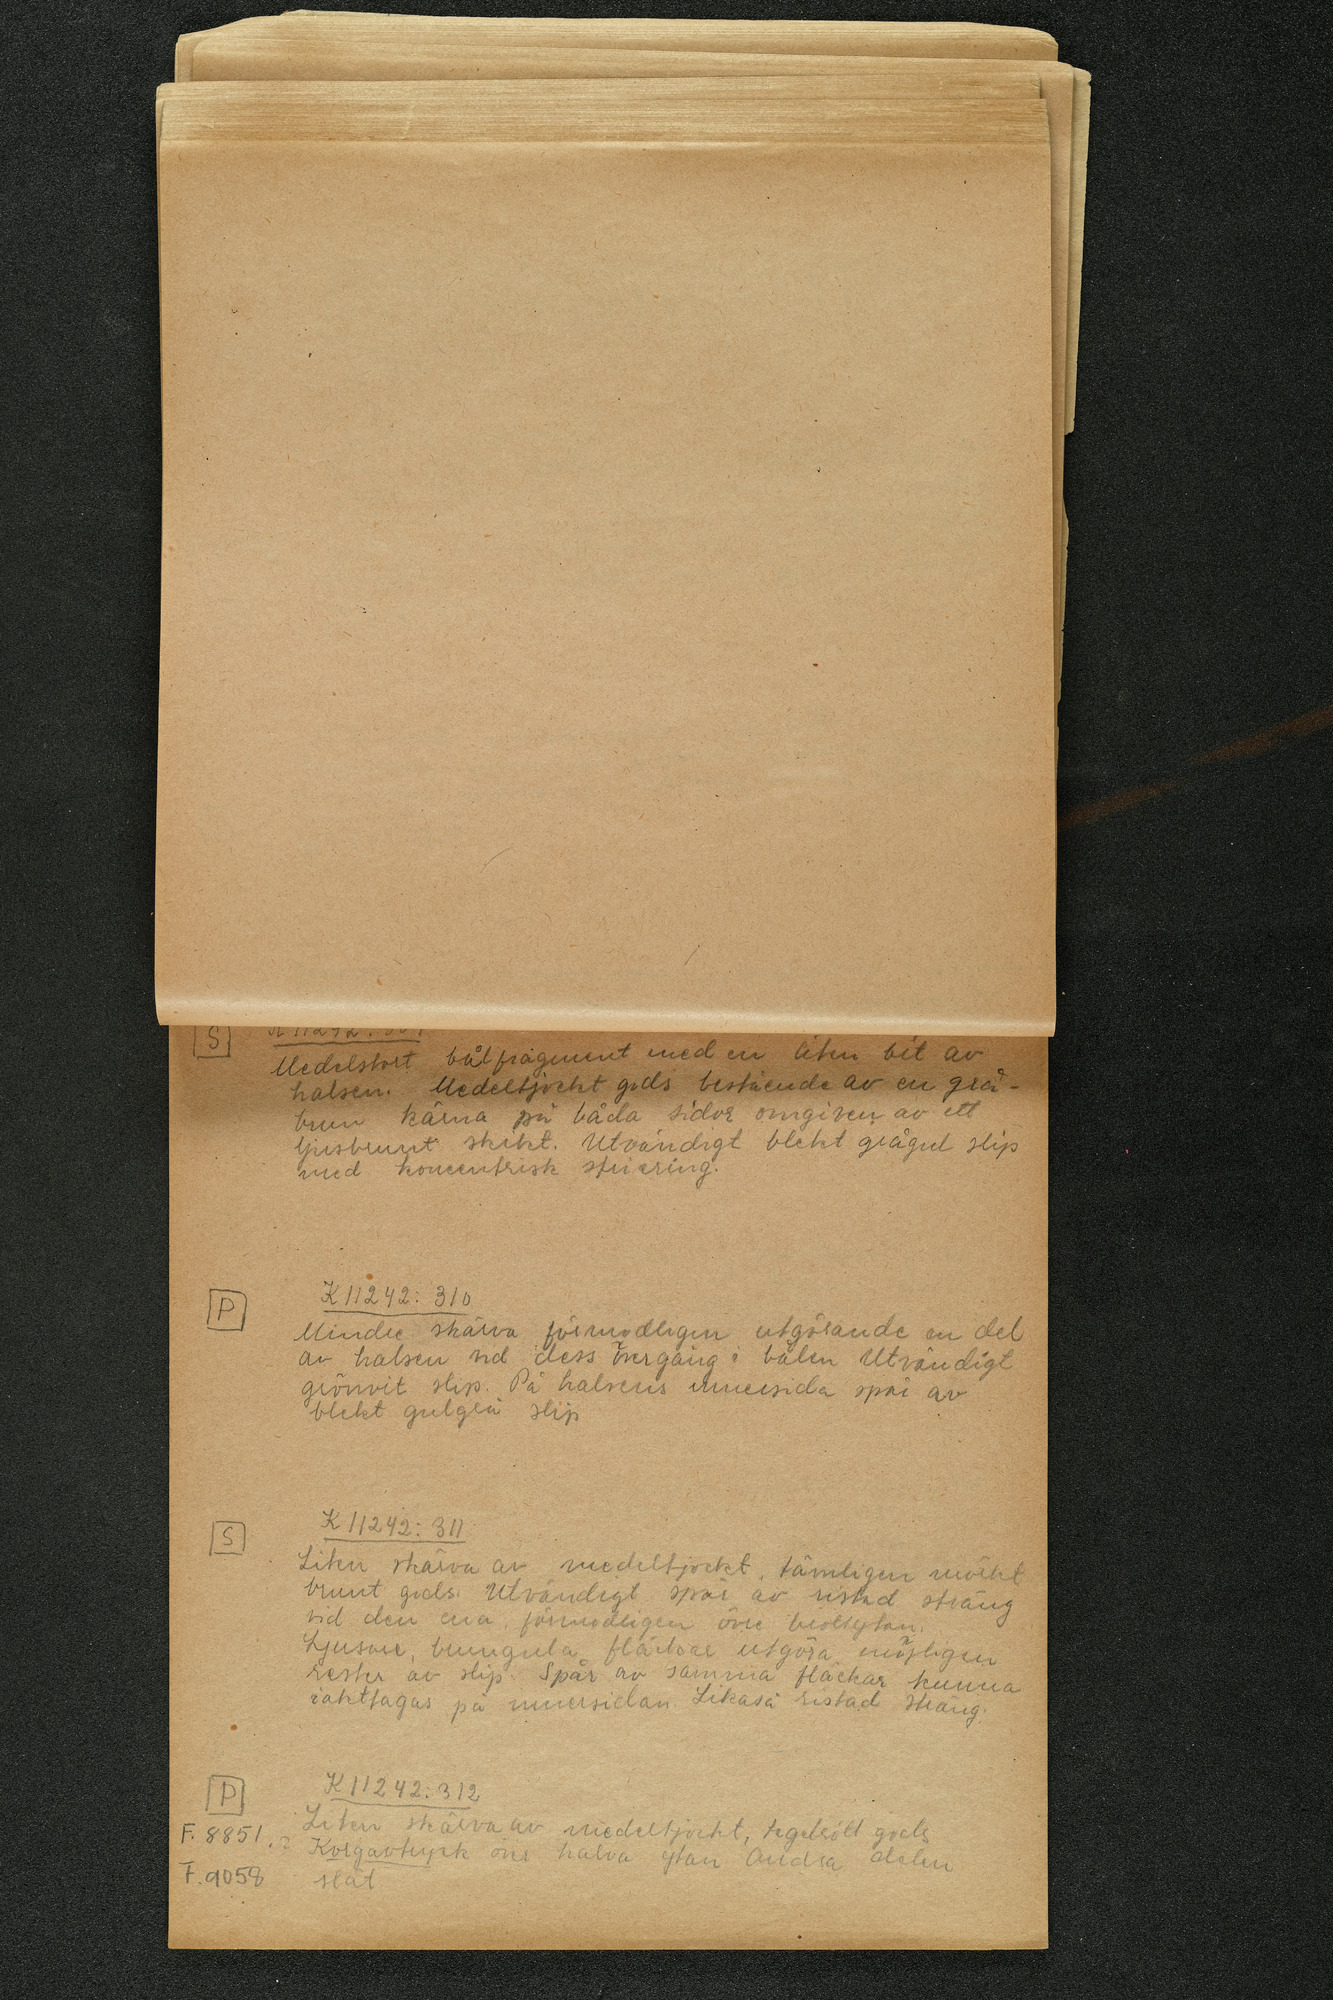 S K 11242:
Medelstort bålfragment med en liten bit av
halsen. Medeltjockt gods bestående av en grå-
brun kärna på båda sidor omgiven av ett
ljusbrunt skikt. Utvändigt blekt grågul slip
med koncentrisk striering.
P K 11242: 310
Mindre skärva förmodligen utgörande en del
av halsen vid dess övergång i bålen Utvändigt
grönvit slip. På halsens innersida spår av
blekt gulgrå slip
S K 11242: 311
Liten skärva av medeltjockt, tämligen mörkt
brunt gods. Utvändigt spår av ristad sträng
vid den ena, förmodligen övre brottytan.
Ljusare, brungula fläckar utgöra möjligen
rester av slip. Spår av samma fläckar kunna
iakttagas på innersidan. Likaså ristad sträng.
P K 11242: 312
F. 8851. Liten skärva av medeltjockt, tegelrött gods
Korgavtryck över halva ytan Andra delen
F. 9058 slät